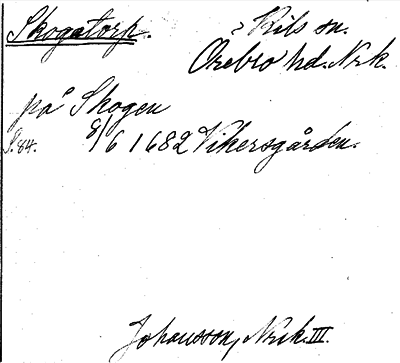 Skogatorp. i Kils sn.
Örebro hd. Nrk.
på Skogen
S. 84. 8/6 1682 Vikersgården.
Johansson, Nrk. III.